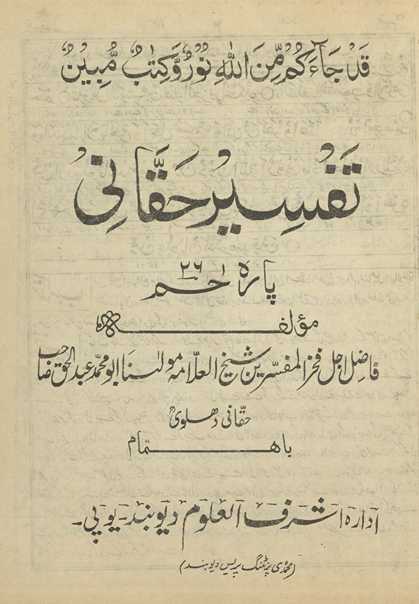 قَدْ جَآءَكُمْ مِّنَ اللّٰهِ نُوْرٌ وَّكِتٰبٌ مُّبِيْنٌ
تَفْسِیْر حَقَّانِی
پارہ ۲۶ حٰم
مؤلفہ
فاضل اجل فخر المفسرین شیخ العلامہ مولٰنا ابو محمد عبد الحق صاحب
حقانی دھلوی
باھتمام
ادارہ اشرف العلوم دیوبند۔ یوپی۔
(محمدی پرنٹنگ پریس دیوبند)